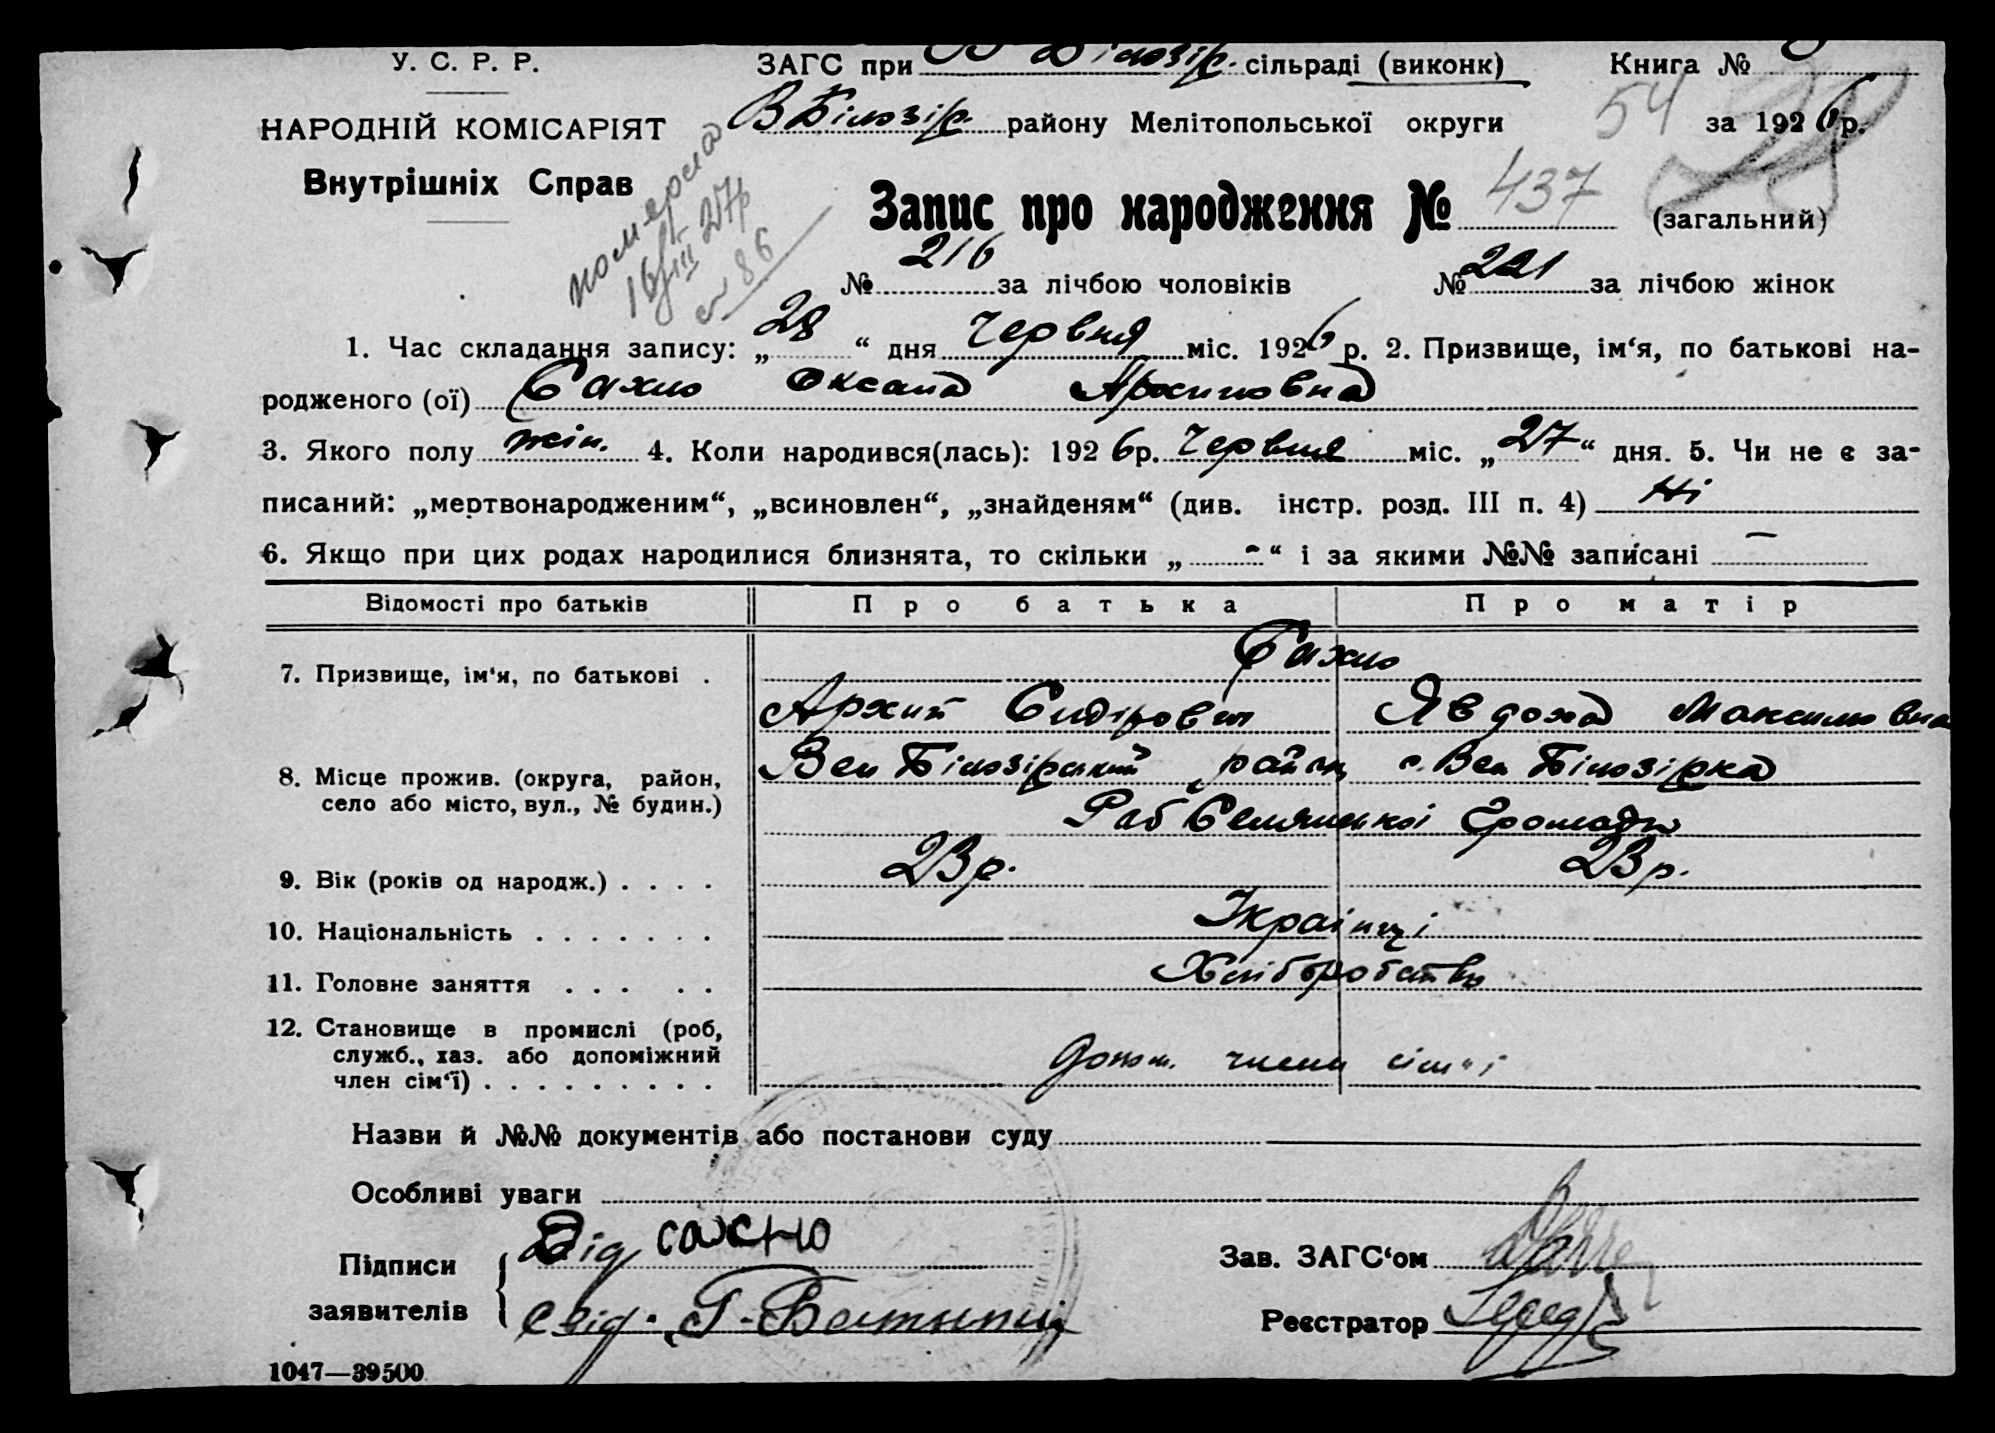 У. С. Р. Р.
НАРОДНІЙ КОМІСАРІЯТ
Внутрішніх Справ
ЗАГС при В Білозір. сільраді (виконк)
Книга №
В Білозір. району Мелітопольської округи
54 за 1926 р.
померла
16/III 27р
86
Запис про народження № 437 (загальний)
№ 216 за лічбою чоловіків № 221 за лічбою жінок
1. Час складання запису: „28“ дня Червня міс. 1926 р. 2. Призвище, ім‘я, по батькові на-
родженого (ої) Сахно Оксана Архиповна
3. Якого полу жін. 4. Коли народився(лась): 1926 р. Червня міс. „27“ дня. 5. Чи не є за-
писаний: „мертвонародженим“, „всиновлен“, „знайденям“ (див. інстр. розд. III п. 4) Ні
6. Якщо при цих родах народилися близнята, то скільки „ - “ і за якими №№ записані —
Відомості про батьків Про батька Про матір
7. Призвище, ім‘я, по батькові . Сахно
Архип Сидірович Явдоха Максимовна
8. Місце прожив. (округа, район, село або місто, вул., № будин.) Вел Білозірський район с. Вел Білозірка
Раб Селянської Громади
9. Вік (років од народж.) . . . . 23 р. 23 р.
10. Національність . . . . . . . Українці
11. Головне заняття . . . . . Хліборобство
12. Становище в промислі (роб,
служб., хаз. або допоміжний
член сім‘ї) . . . . . . . . . допом. члени сім'ї
Назви й №№ документів або постанови суду
Особливі уваги
Підписи
заявителів
Від сахно
свід.
Зав. ЗАГС‘ом
Реєстратор
1047—39500